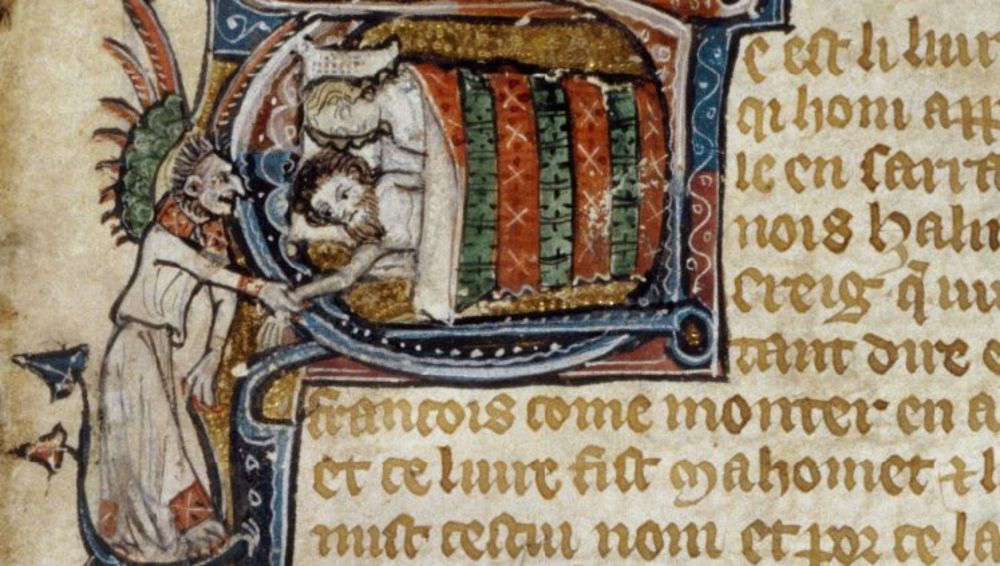 e est li liur
qi hom app
le en sarra
nois hal
ereig q̄
tant dire
francois come monter en a
et ce liure fist Mahomet ⁊ l
mist cestui nom et por ce la